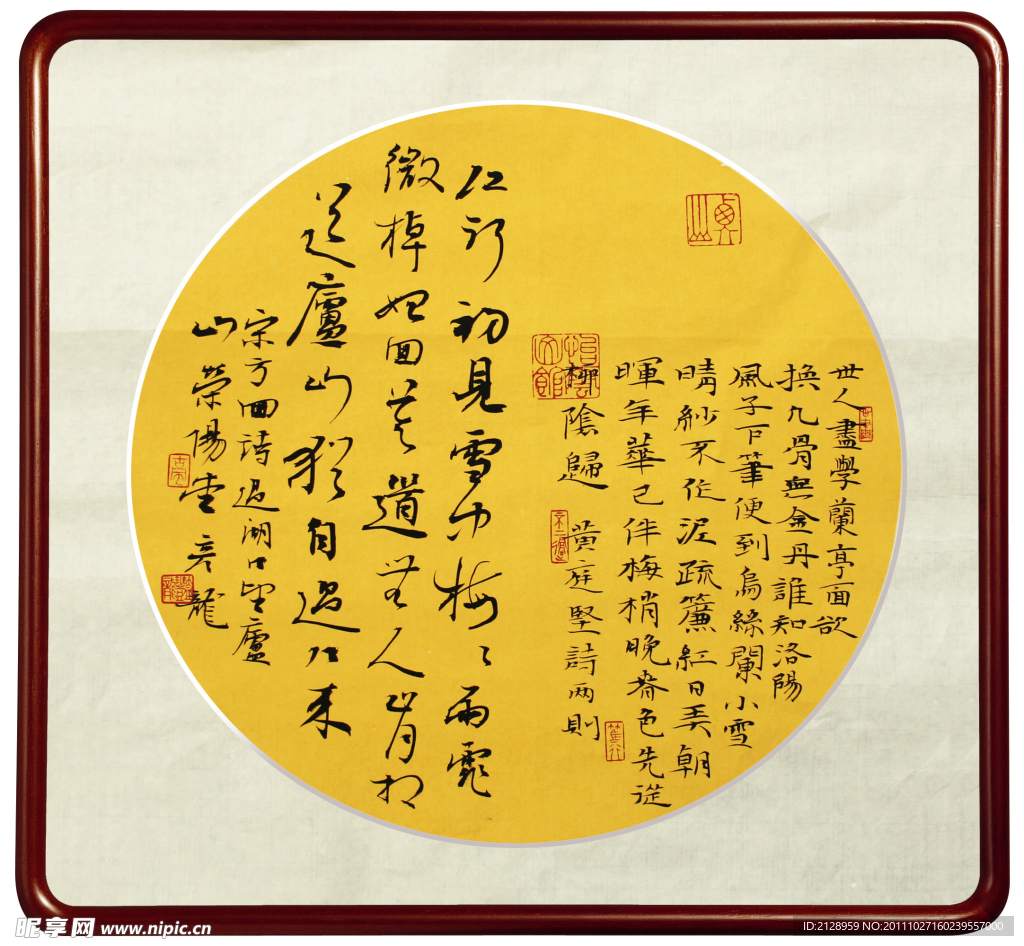 世人盡學蘭亭面欲
換凡骨無金丹誰知洛陽
風子下筆便到烏絲闌小雪
晴紗不作泥疏簾紅日弄朝
暉年華已伴梅梢晚春色先從
柳陰歸 黃庭堅詩兩則
江行初見雪中梅〻雨霏
微棹始回莫道無人肯相
送廬山猶自過江來
宋方回詩過湖口望廬
山榮陽堂彥龍
昵享网 www.nipic.cn
ID:2128959 NO:20111027160239557000